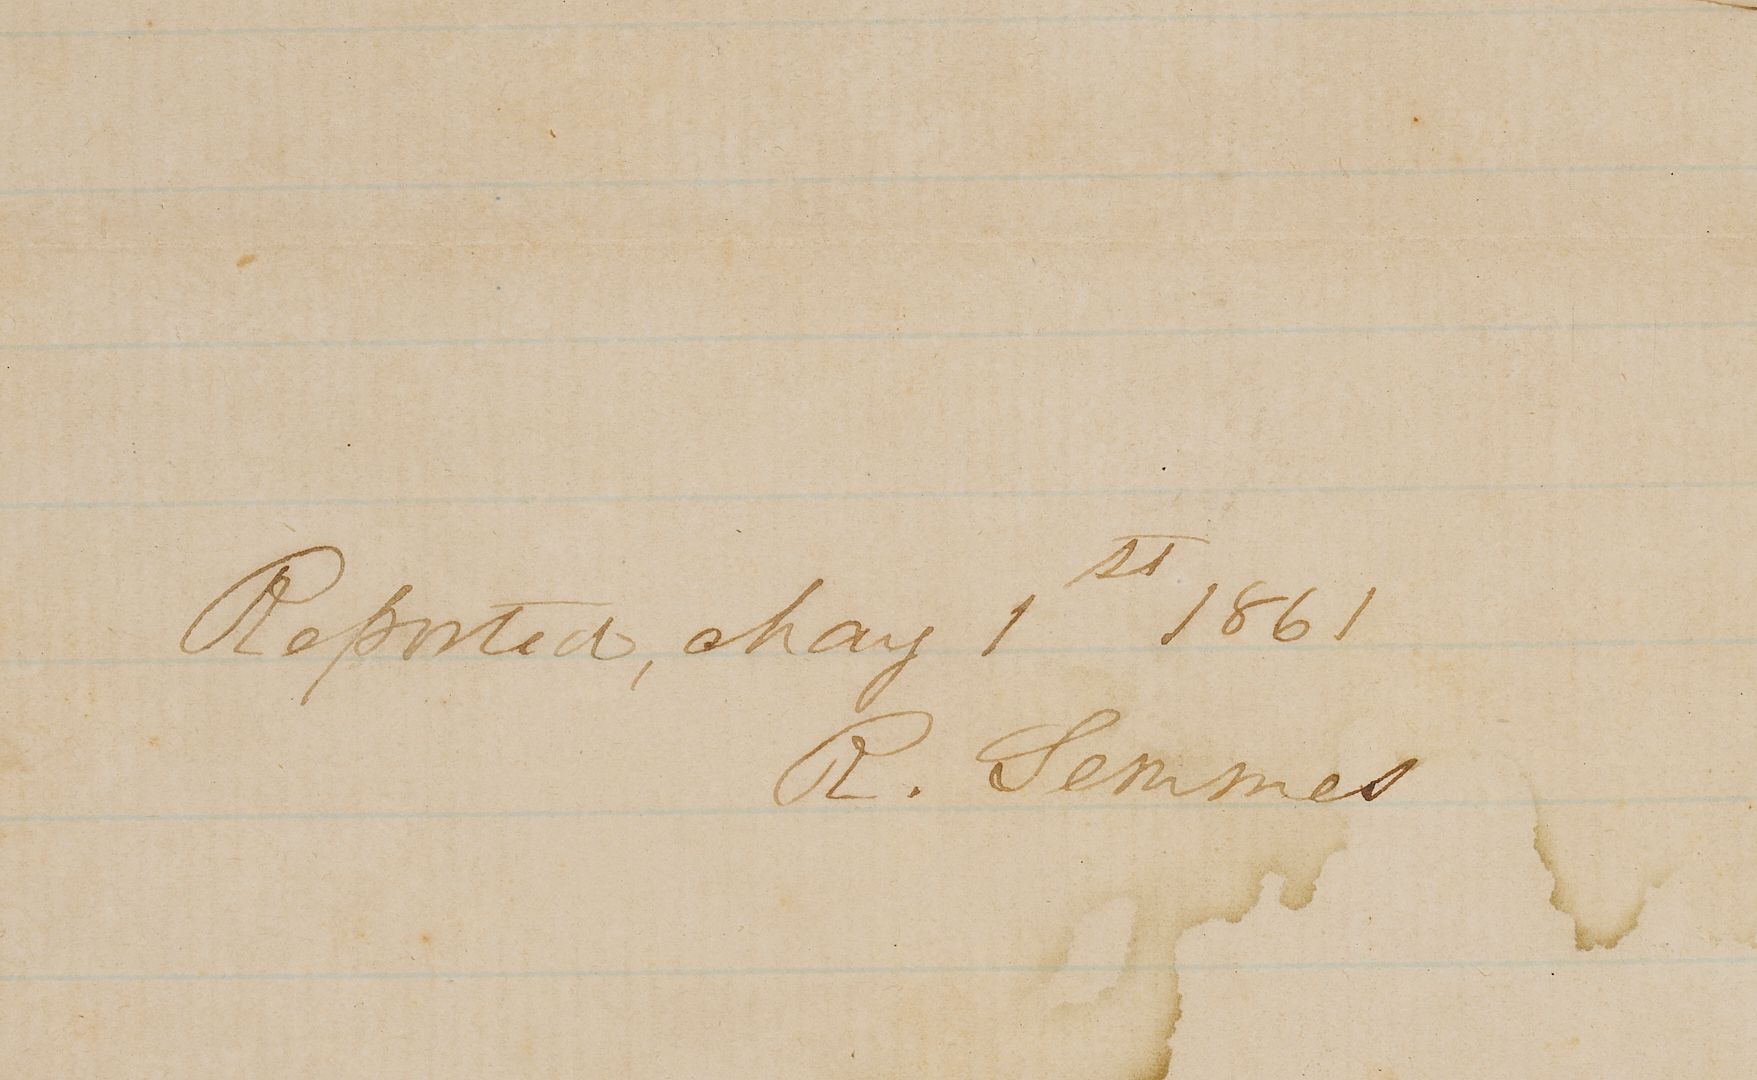 Reported, May 1st 1861
R. Semmes